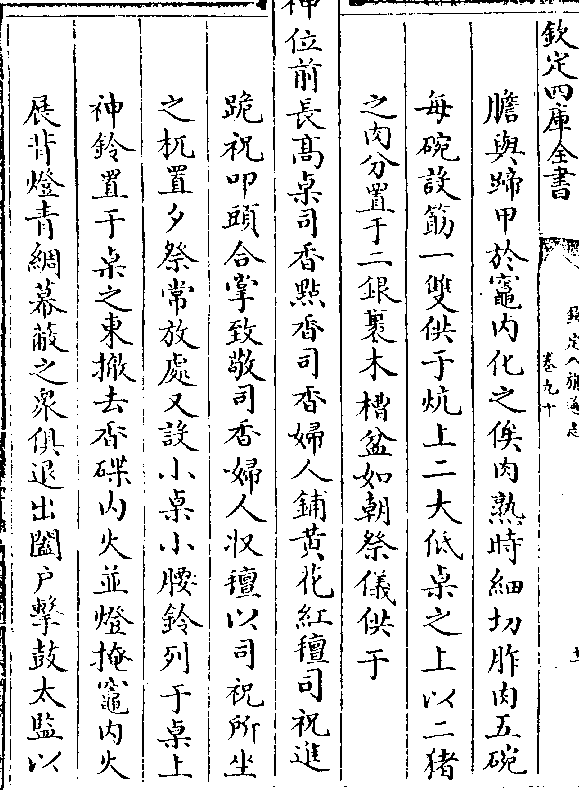 欽定四庫全書
欽定八旗通志
卷九十
膽與蹄甲於竈内化之俟肉熟時細切胙肉五碗
每碗設筯一雙供于炕上二大低桌之上以二猪
之肉分置于二銀裹木槽盆如朝祭儀供于
神位前長高桌司香點香司香婦人鋪黄花紅氊司祝進
跪祝叩頭合掌致敬司香婦人收氊以司祝所坐
之杌置夕祭常放處又設小桌小腰鈴列于桌上
神鈴置于桌之東撤去香碟内火並燈掩竈内火
展背燈青綢幕蔽之衆俱退出闔户擊鼓太監以